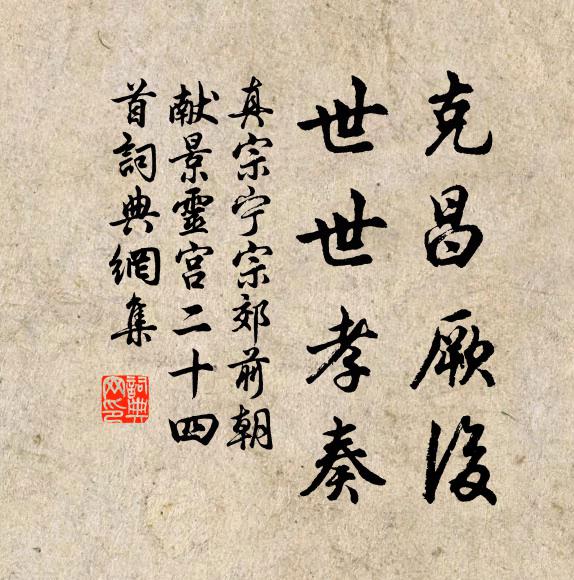 克昌厥後
世世孝奏
真宗宁宗郊前朝
献景靈宮二十四
首詞典網集
詞典网印